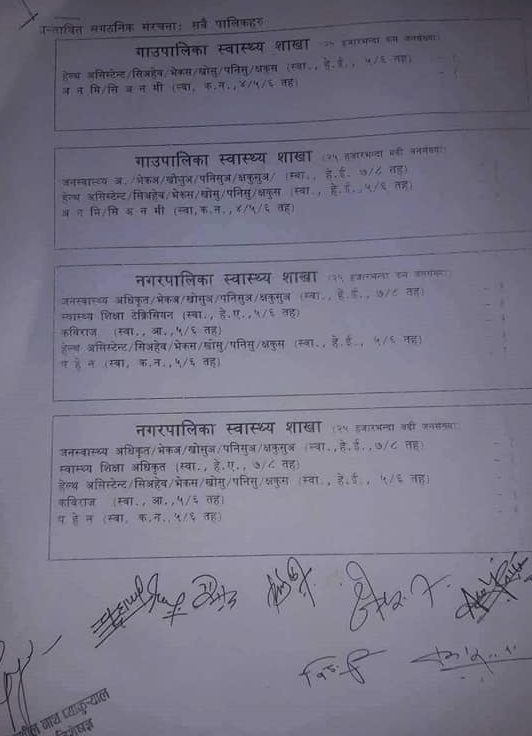 प्रस्तावित संगठनिक संरचनाः सबै पालिकहरु
गाउपालिका स्वास्थ्य शाखा (२५ हजारभन्दा कम जनसंख्या)
हेल्थ असिस्टेन्ट/सिअहेब/भेकस/खोसु/पनिसु/क्षकुस (स्वा., हे.ई., ५/६ तह)
अ न मि/सि अ न मी (स्वा, क.न.,४/५/६ तह)
गाउपालिका स्वास्थ्य शाखा (२५ हजारभन्दा बढी जनसंख्या)
जनस्वास्थ्य अ./भेकअ/खोसुअ/पनिसुअ/क्षकुसुअ/ (स्वा., हे.ई. ७/८ तह)
हेल्थ असिस्टेन्ट/सिअहेब/भेकस/खोसु/पनिसु/क्षकुस (स्वा., हे.ई.,५/६ तह)
अ न मि/सि अ न मी (स्वा,क.न.,४/५/६ तह)
नगरपालिका स्वास्थ्य शाखा (२५ हजारभन्दा कम जनसंख्या)
जनस्वास्थ्य अधिकृत/भेकअ/खोसुअ/पनिसुअ/क्षकुसुअ (स्वा., हे.ई., ७/८ तह)
स्वास्थ्य शिक्षा टेक्निसियन (स्वा., हे.ए.,५/६ तह)
कविराज (स्वा., आ.,५/६ तह)
हेल्थ असिस्टेन्ट/सिअहेब/भेकस/खोसु/पनिसु/क्षकुस (स्वा., हे.ई., ५/६ तह)
प हे न (स्वा, क.न.,५/६ तह)
नगरपालिका स्वास्थ्य शाखा (२५ हजारभन्दा बढी जनसंख्या)
जनस्वास्थ्य अधिकृत/भेकअ/खोसुअ/पनिसुअ/क्षकुसुअ (स्वा.,हे.ई.,७/८ तह)
स्वास्थ्य शिक्षा अधिकृत (स्वा., हे.ए., ७/८ तह)
हेल्थ असिस्टेन्ट/सिअहेब/भेकस/खोसु/पनिसु/क्षकुस (स्वा., हे.ई., ५/६ तह)
कविराज (स्वा., आ.,५/६ तह)
प हे न (स्वा, क.न.,५/६ तह)
नाथ